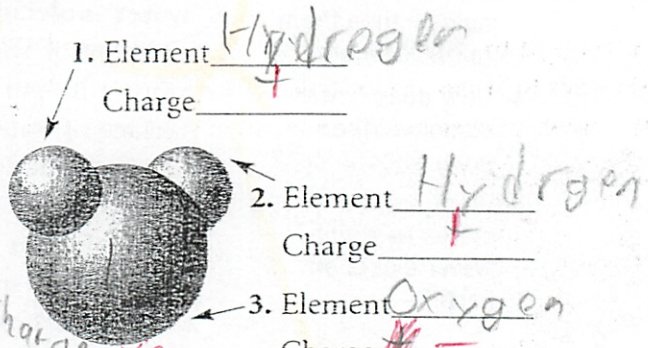 1. Element Hydrogen
Charge +
2. Element Hydrgen
Charge +
3. Element Oxygen